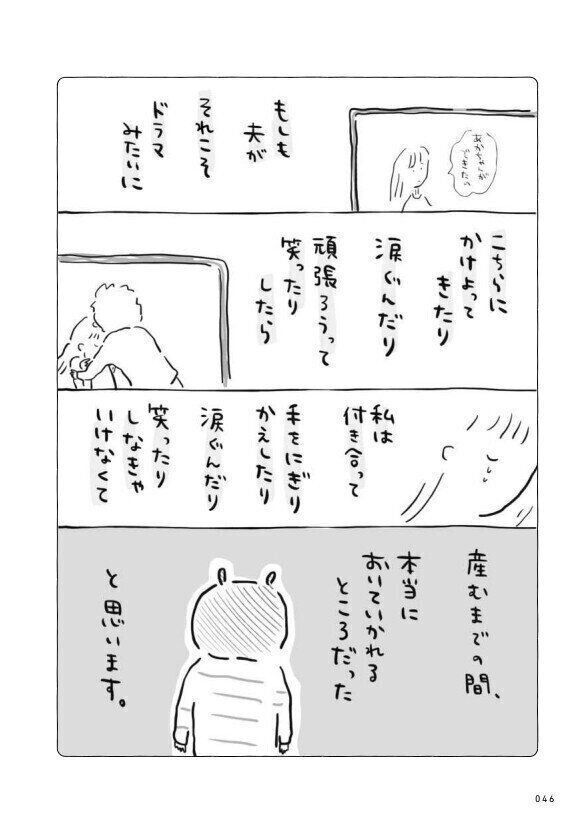 もしも
夫が
それこそ
ドラマ
みたいに
あかちゃんが
できたの
こちらに
かけよって
きたり
涙ぐんだり
頑張ろうって
笑ったり
したら
私は
付き合って
手をにぎり
かえしたり
涙ぐんだり
笑ったり
しなきゃ
いけなくて
産むまでの間、
本当に
おいていかれる
ところだった
と思います。
046